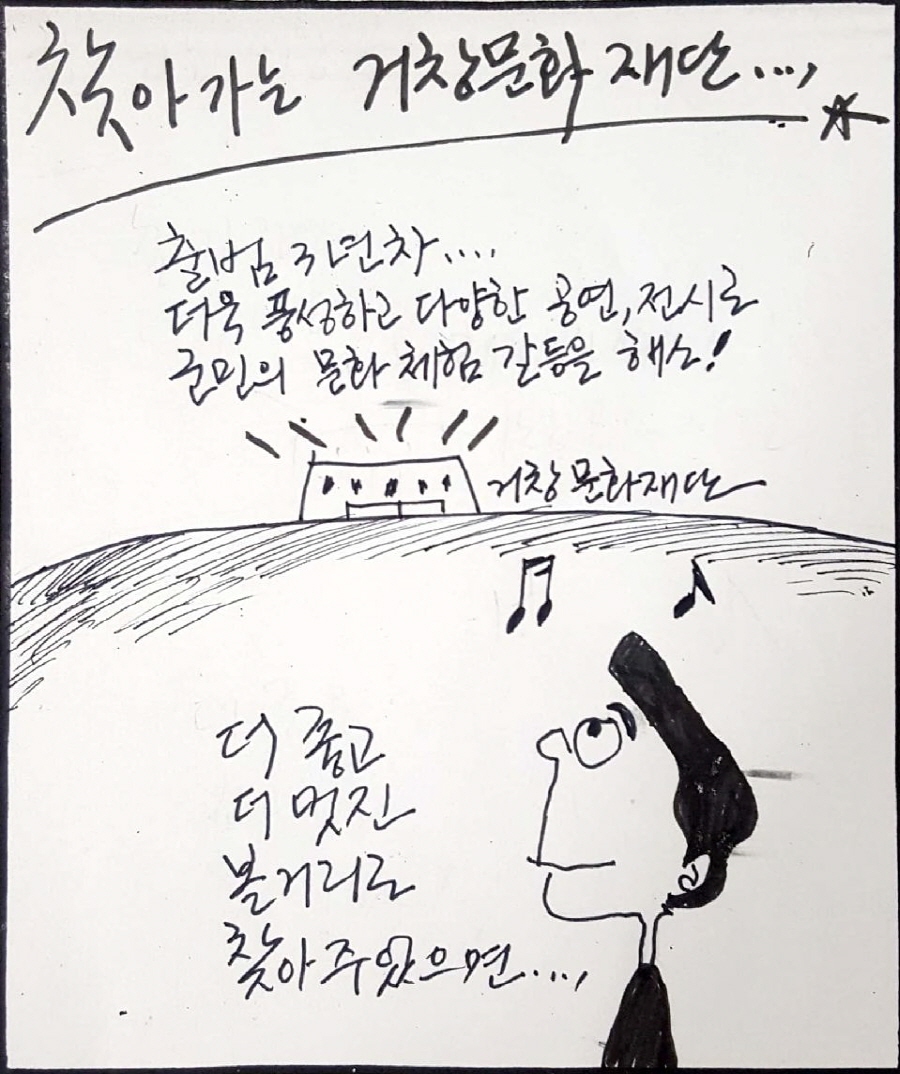 찾아가는 거창문화재단....,
출범 3년차....
더욱 풍성하고 다양한 공연,전시로
군민의 문화 체험 갈등을 해소!
거창문화재단
더 좋고
더 멋진
볼거리로
찾아 주었으면....,